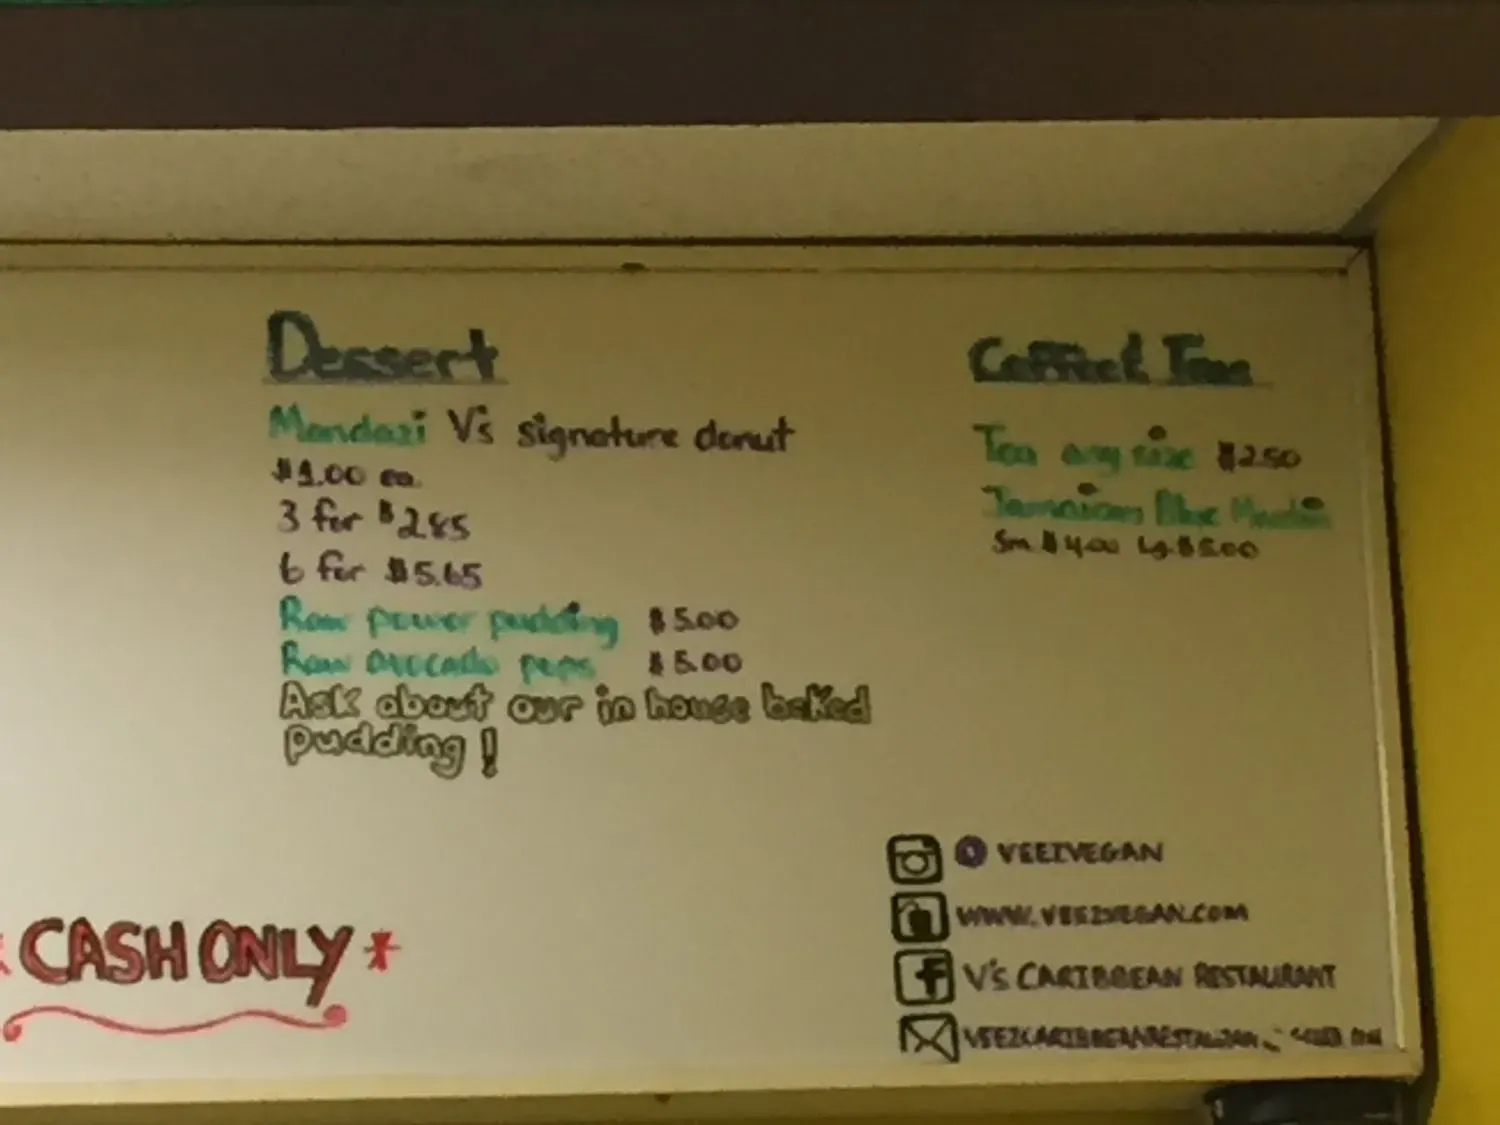 Dessert
Mandazi V's signature donut
$1.00 ea.
3 for $2.85
6 for $5.65
Raw power pudding $5.00
Raw avocado $5.00
Ask about our in house baked
pudding!
* CASH ONLY *
Tea
Tea any size $2.50
Jamaican Blue
Sm $4.00 Lg. $5.00
VEEZVEGAN
WWW.VEEZVEGAN.COM
V's CARIBBEAN RESTAURANT